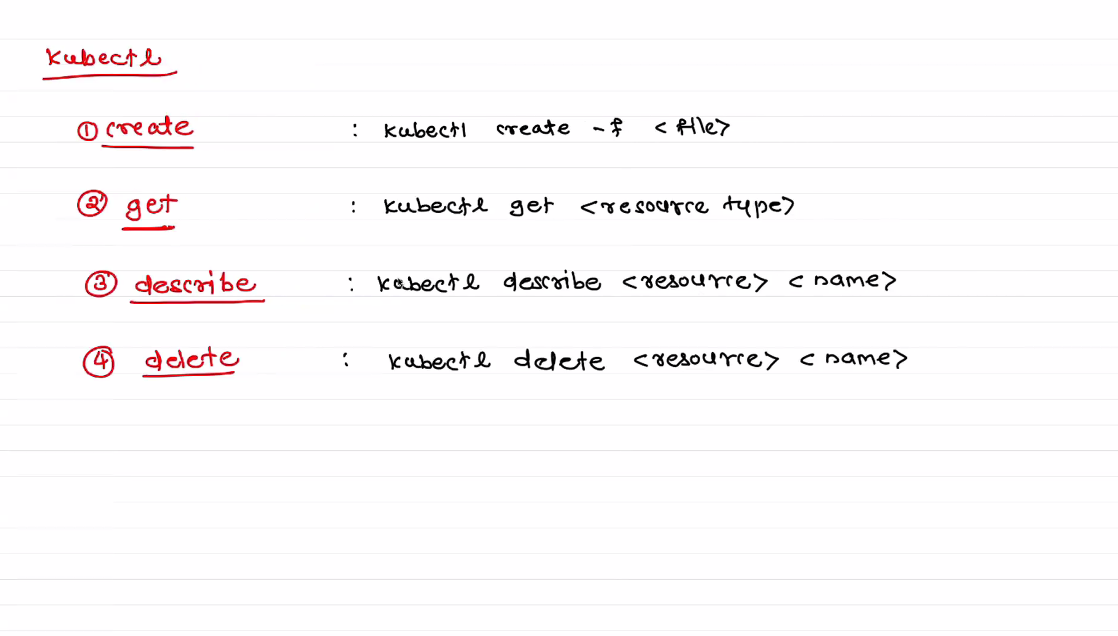 kubectl
① create : kubectl create -f <file>
② get : kubectl get <resource type>
③ describe : kubectl describe <resource> <name>
④ delete : kubectl delete <resource> <name>